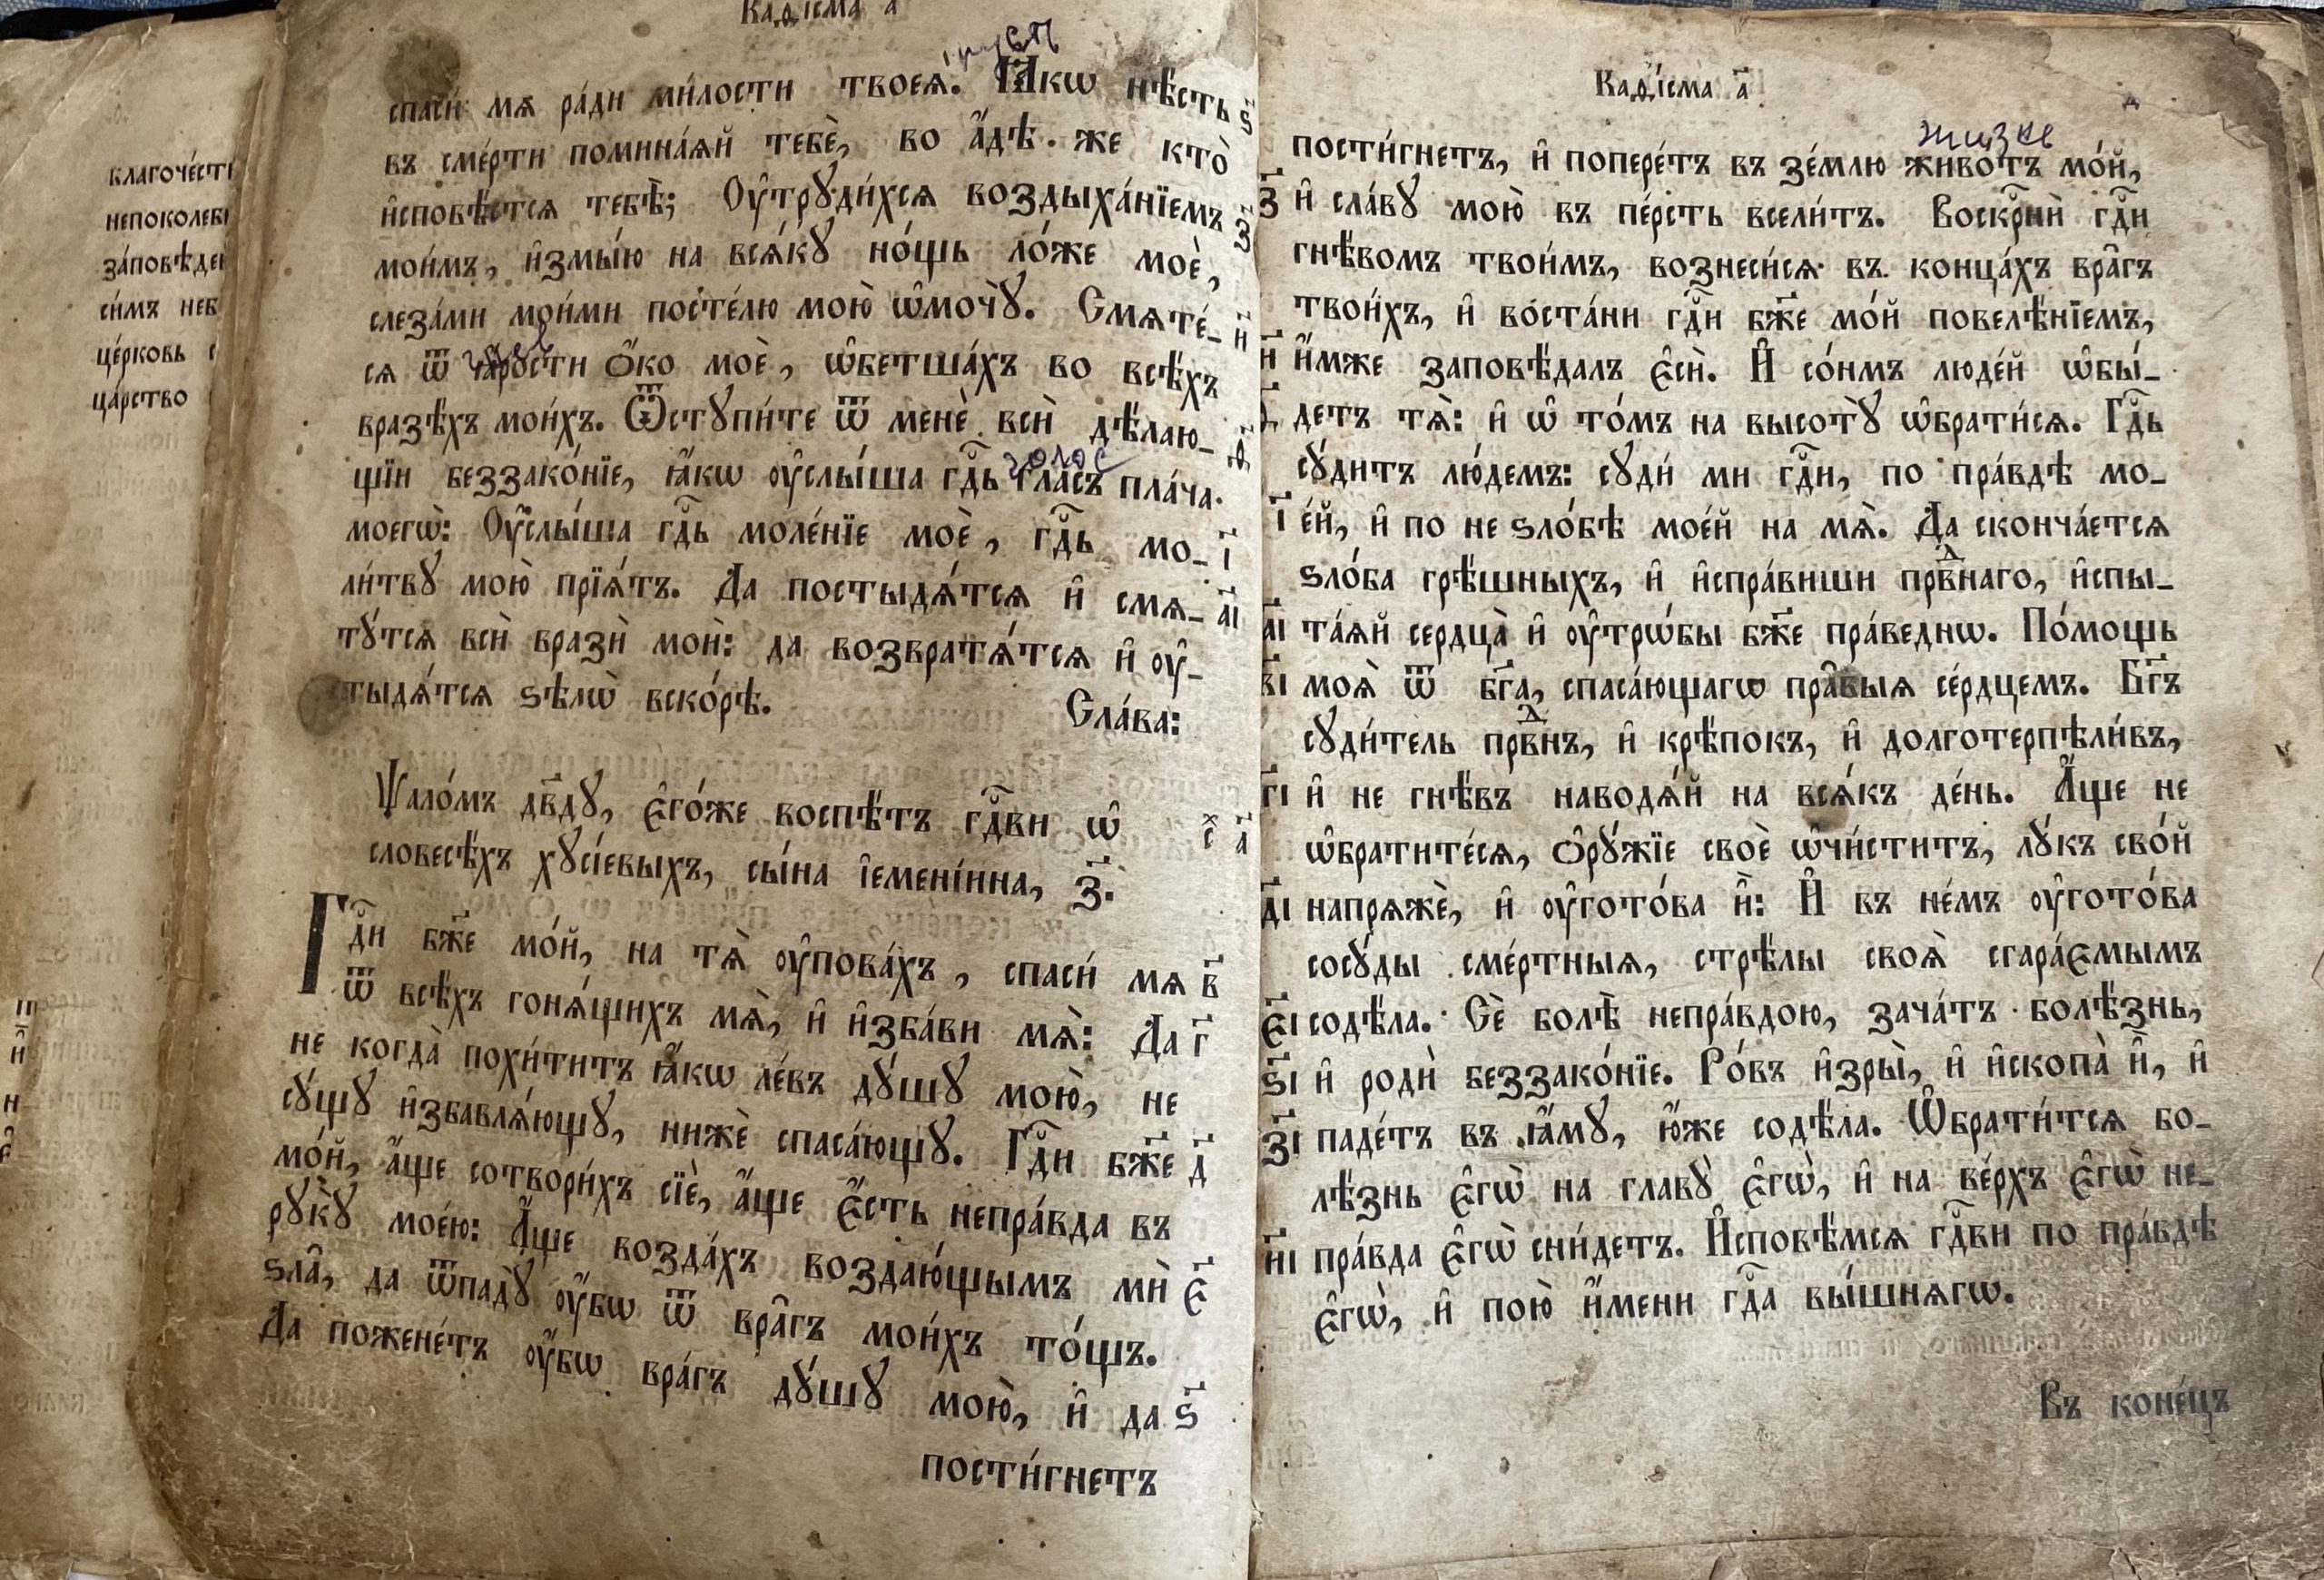 Каѳі́сма а҃
благоче́сті
непоколебі
за́повѣде
си́мъ неб
це́рковь с
ца́рство
спаси́ мѧ ра́ди ми́лости твоеѧ̀. Ꙗ҆́кѡ нѣ́сть ѕ҃
въ сме́рти помина́ѧй тебѐ, во а҆́дѣ же кто̀
и҆сповѣ́стсѧ тебѣ̀; Оу҆трꙋди́хсѧ воздыха́нїемъ з҃
мои́мъ, и҆змы́ю на всѧ́кꙋ но́щь ло́же моѐ,
слеза́ми мои́ми посте́лю мою̀ ѡ҆мочꙋ̀. Смѧте́- и҃
сѧ ѿ ꙗ҆́рости ѻ҆́ко моѐ, ѡ҆бетша́хъ во всѣ́хъ
вразѣ́хъ мои́хъ. Ѿстꙋпи́те ѿ менѐ всѝ дѣ́лаю- ѳ҃
щїи беззако́нїе, ꙗ҆́кѡ оу҆слы́ша гдⷭ҇ь гла́съ пла́ча
голос
моегѡ̀: Оу҆слы́ша гдⷭ҇ь моле́нїе моѐ, гдⷭ҇ь мо- і҃
ли́твꙋ мою̀ прїѧ́тъ. Да постыдѧ́тсѧ и҆ смѧ- а҃і
тꙋ́тсѧ всѝ вразѝ моѝ: да возвратѧ́тсѧ и҆ оу҆-
стыдѧ́тсѧ ѕѣлѡ̀ вско́рѣ. Сла́ва:
Ѱало́мъ дв҃дꙋ, є҆го́же воспѣ́тъ гдⷭ҇ви ѡ҆
словесѣ́хъ хꙋсі́евыхъ, сы́на і҆емені́ина, з҃. с̾ а҃
Гдⷭ҇и бж҃е мо́й, на тѧ̀ оу҆пова́хъ, спаси́ мѧ в҃
ѿ всѣ́хъ гонѧ́щихъ мѧ̀, и҆ и҆зба́ви мѧ̀: Да г҃
не когда̀ похи́титъ ꙗ҆́кѡ ле́въ дꙋ́шꙋ мою̀, не
сꙋ́щꙋ и҆збавлѧ́ющꙋ, нижѐ спаса́ющꙋ. Гдⷭ҇и бж҃е д҃
мо́й, а҆́ще сотвори́хъ сїѐ, а҆́ще є҆́сть непра́вда въ
рꙋкꙋ̀ мое́ю: А҆́ще возда́хъ воздаю́щымъ мѝ є҃
ѕла̑, да ѿпадꙋ̀ оу҆́бѡ ѿ вра̑гъ мои́хъ то́щъ.
Да пожене́тъ оу҆́бѡ вра́гъ дꙋ́шꙋ мою̀, и҆ да ѕ҃
пости́гнетъ
Каѳі́сма а҃
д
жизнь
пости́гнетъ, и҆ попере́тъ въ зе́млю живо́тъ мо́й,
з҃ и҆ сла́вꙋ мою̀ въ пе́рсть всели́тъ. Воскрⷭ҇нѝ гдⷭ҇и
гнѣ́вомъ твои́мъ, вознеси́сѧ въ конца́хъ вра̑гъ
твои́хъ, и҆ воста́ни гдⷭ҇и бж҃е мо́й повелѣ́нїемъ,
и҃ и҆́мже заповѣ́далъ є҆сѝ. И҆ со́нмъ люде́й ѡ҆бы́-
детъ тѧ̀: и҆ ѡ҆ то́мъ на высотꙋ̀ ѡ҆брати́сѧ. Гдⷭ҇ь
сꙋ́дитъ лю́демъ: сꙋди́ ми гдⷭ҇и, по пра́вдѣ мо-
і҃ е́й, и҆ по не ѕло́бѣ мое́й на мѧ̀. Да сконча́етсѧ
ѕло́ба грѣ́шныхъ, и҆ и҆спра́виши прⷣвнаго, и҆спы-
а҃і та́ѧй сердца̀ и҆ оу҆трѡ́бы бж҃е пра́веднѡ. По́мощь
в҃і моѧ̀ ѿ бг҃а, спаса́ющагѡ пра̑выѧ се́рдцемъ. Бг҃ъ
сꙋди́тель прⷣвнъ, и҆ крѣ́покъ, и҆ долготерпѣли́въ,
г҃і и҆ не гнѣ́въ наводѧ́й на всѧ́къ де́нь. А҆́ще не
ѡ҆братите́сѧ, ѻ҆рꙋ́жїе своѐ ѡ҆чи́ститъ, лꙋ́къ сво́й
д҃і напрѧжѐ, и҆ оу҆гото́ва и҆̀: И҆ въ не́мъ оу҆гото́ва
сосꙋ́ды сме́ртныѧ, стрѣ́лы своѧ̀ сгара́ємымъ
є҃і содѣ́ла. Сѐ болѣ̀ непра́вдою, зача́тъ болѣ́знь,
ѕ҃і и҆ родѝ беззако́нїе. Ро́въ и҆зры̀, и҆ и҆скопа̀ и҆̀, и҆
з҃і паде́тъ въ ꙗ҆́мꙋ, ю҆́же содѣ́ла. Ѡ҆брати́тсѧ бо-
лѣ́знь є҆гѡ̀ на главꙋ̀ є҆гѡ̀, и҆ на ве́рхъ є҆гѡ̀ не-
и҃і пра́вда є҆гѡ̀ сни́детъ. И҆сповѣ́мсѧ гдⷭ҇ви по пра́вдѣ
є҆гѡ̀, и҆ пою̀ и҆́мени гдⷭ҇а вы́шнѧгѡ.
Въ коне́цъ